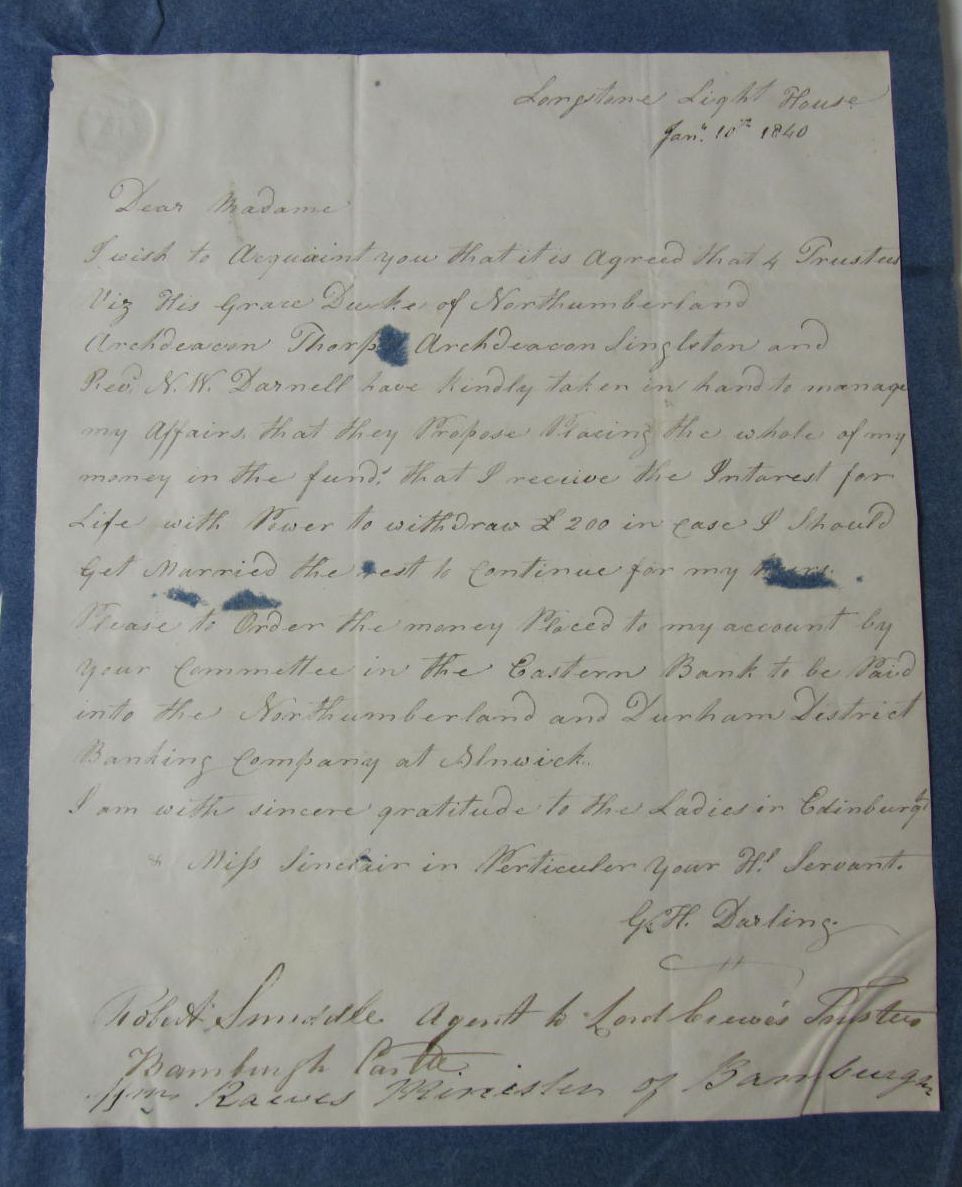 Longstone Light House
Jany. 10th 1840
Dear Madame
I wish to Acquaint you that it is Agreed that 4 Trustees
Viz His Grace Duke of Northumberland
Archdeacon Thorp Archdeacon Singleton and
Revd. N.W. Darnell have kindly taken in hand to manage
my Affairs that they Propose Placing the whole of my
money in the fund, that I recieve the Intarest for
Life with Power to withdraw £200 in case I Should
Get Married the rest to Continue for my
Please to Order the money Placed to my account by
your Committee in the Eastern Bank to be Paid
into the Northumberland and Durham District
Banking Company at Alnwick.
I am with sincere gratitude to the Ladies in Edinburgh
& Miss Sinclair in Perticuler your Hl Servant.
G.H. Darling.
Robert Smeddle Agent to Lord Crewe's Trustees
Bamburgh Castle
Minister of Bamburgh